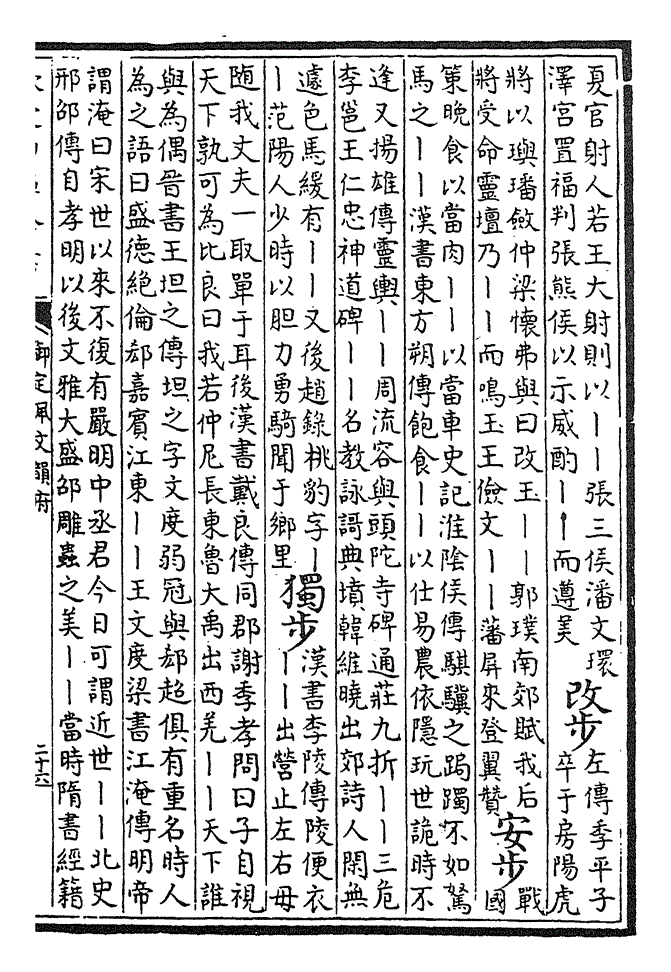 夏官射人若王大射則以丨丨張三侯潘文環
澤宮置福判張熊侯以示威酌丨丨而遵美
改步
左傳季平子
卒于房陽虎
將以璵璠斂仲梁懷弗與曰改玉丨丨郭璞南郊賦我后
將受命靈壇乃丨丨而鳴玉王儉文丨丨藩屏來登翼贊
安步
戰
國
策晚食以當肉丨丨以當車史記淮陰侯傳騏驥之跼躅不如駑
馬之丨丨漢書東方朔傳飽食丨丨以仕易農依隱玩世詭時不
逢又揚雄傳靈輿丨丨周流容與頭陀寺碑通莊九折丨丨三危
李邕王仁忠神道碑丨丨名教詠謌典墳韓維曉出郊詩人閑無
遽色馬緩有丨丨又後趙錄桃豹字丨
丨范陽人少時以胆力勇騎聞于鄉里
獨步
漢書李陵傳陵便衣
丨丨出營止左右毋
随我丈夫一取單于耳後漢書戴良傳同郡謝季孝問曰子自視
天下孰可為比良曰我若仲尼長東魯大禹出西羌丨丨天下誰
與為偶晉書王坦之傳坦之字文度弱冠與郄超俱有重名時人
為之語曰盛德絕倫郄嘉賓江東丨丨王文度梁書江淹傳明帝
謂淹曰宋世以來不復有嚴明中丞君今日可謂近世丨丨北史
邢邵傳自孝明以後文雅大盛邵雕蟲之美丨丨當時隋書經籍
御定佩文韻府
二十六